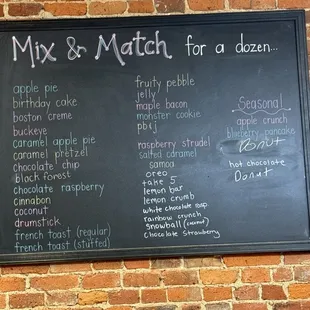 Mix & Match for a dozen...
apple pie
birthday cake
boston creme
buckeye
caramel apple pie
caramel pretzel
chocolate chip
black forest
chocolate raspberry
cinnabon
coconut
drumstick
french toast (regular)
french toast (stuffed)
fruity pebble
jelly
maple bacon
monster cookie
pb&j
raspberry strudel
salted caramel
samoa
oreo
take 5
lemon bar
lemon crumb
white chocolate
rainbow crunch
snowball (coconut)
chocolate strawberry
Seasonal
apple crunch
blueberry pancake
Donut
hot chocolate
Donut